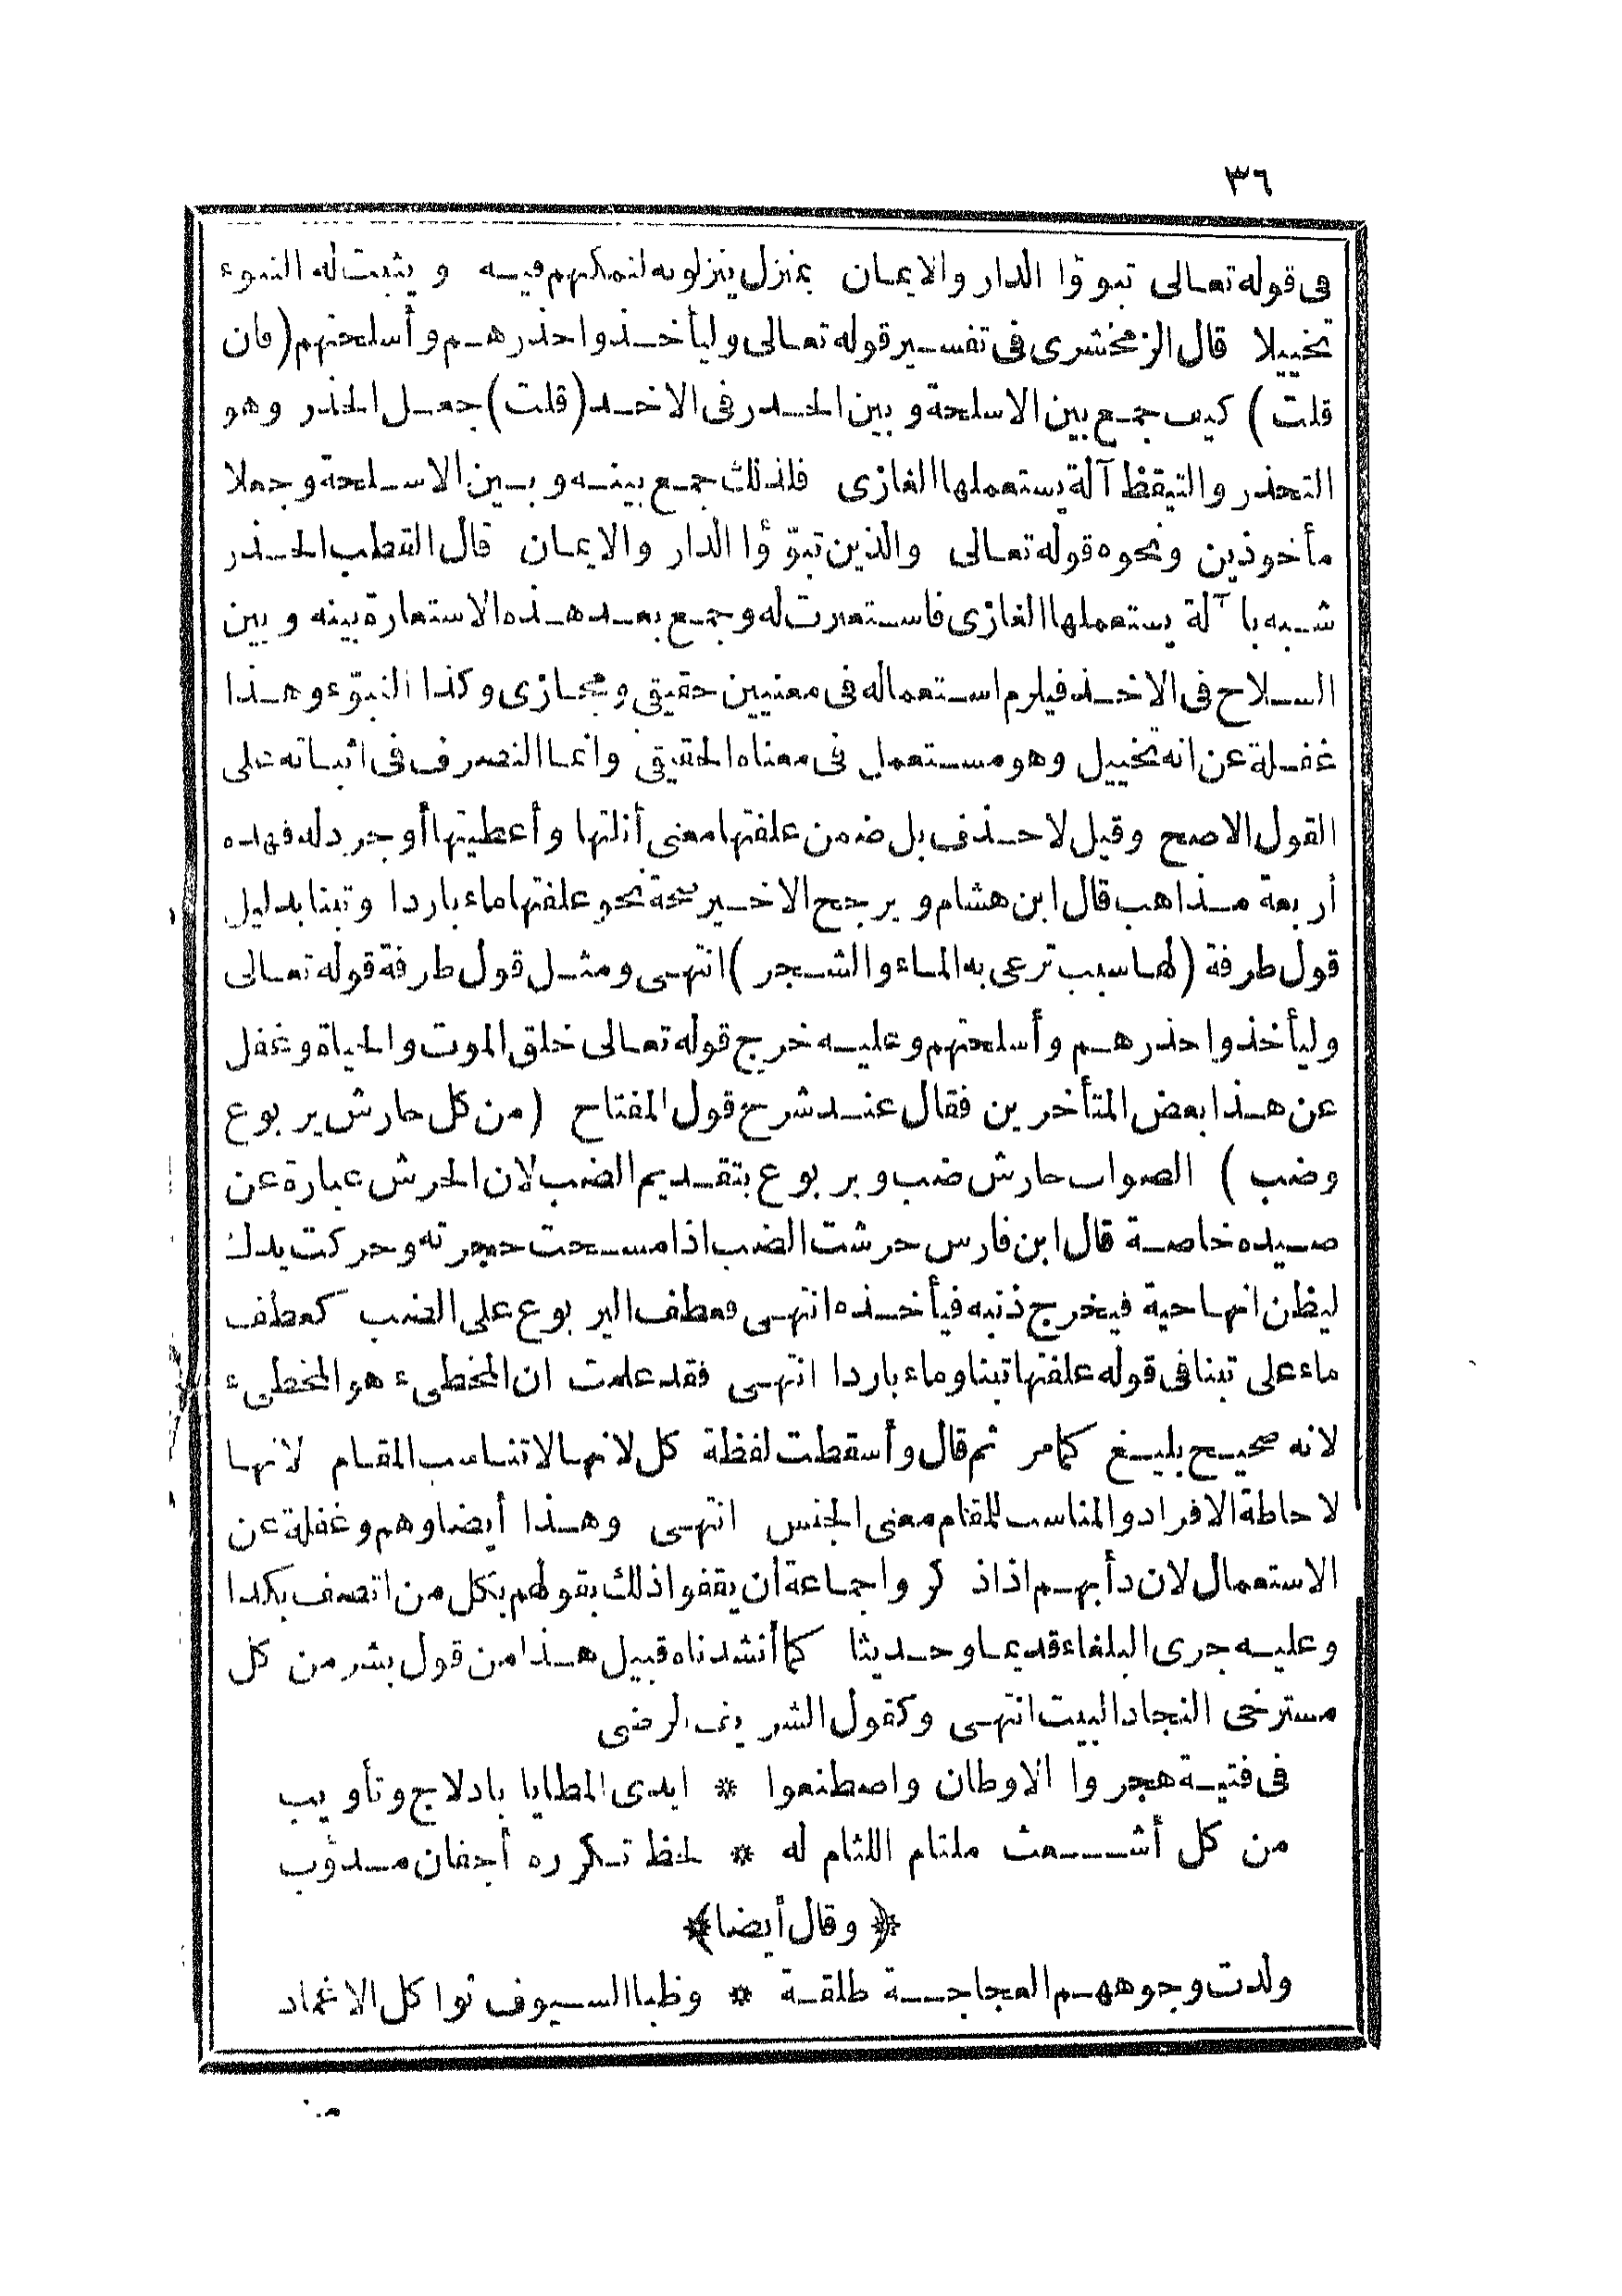 ٣٦
فى قوله تعالى تبوؤا الدار والايمان بمنزل ينزلونه لتمكنهم فيه ويثبت له التبوء
تخييلا قال الزمخشرى فى تفسير قوله تعالى وليأخذوا حذرهم وأسلحتهم (فان
قلت) كيف جمع بين الاسلحة وبين الحذر فى الاخذ (قلت) جعل الحذر وهو
التحذر والتيقظ آلة يستعملها الغازى فلذلك جمع بينه وبين الاسلحة وجعلا
مأخوذين ونحوه قوله تعالى والذين تبوّؤا الدار والايمان قال القطب الحذر
شبه با آلة يستعملها الغازى فاستعيرت له وجمع بعد هذه الاستعارة بينه وبين
السلاح فى الاخذ فيلزم استعماله فى معنيين حقيقى ومجازى وكذا التبوّء وهذا
غفلة عن انه تخييل وهو مستعمل فى معناه الحقيقى وانما التصرف فى اثباته على
القول الاصح وقيل لا حذف بل ضمن علفتها معنى أنلتها وأعطيتها أو جرد له فهذه
أربعة مذاهب قال ابن هشام ويرجح الاخير صحة نحو علفتها ماء باردا وتبنا بدليل
قول طرفة (لها سبب ترعى به الماء والشجر) انتهى ومثل قول طرفة قوله تعالى
وليأخذوا حذرهم وأسلحتهم وعليه خرج قوله تعالى خلق الموت والحياة وغفل
عن هذا بعض المتأخرين فقال عند شرح قول المفتاح (من كل حارش يربوع
وضب) الصواب حارش ضب ويربوع بتقديم الضب لان الحرش عبارة عن
صيده خاصة قال ابن فارس حرشت الضب اذا مسحت حجرته وحركت يدك
ليظن انها حية فيخرج ذنبه فيأخذه انتهى فعطف اليربوع على الضب كعطف
ماء على تبنا فى قوله علفتها تبنا وماء باردا انتهى فقد علمت ان المخطىء هو المخطىء
لانه صحيح بليغ كما مر ثم قال وأسقطت لفظة كل لانها لا تناسب المقام لانها
لاحاطة الافراد والمناسب للمقام معنى الجنس انتهى وهذا أيضا وهم وغفلة عن
الاستعمال لان دأبهم اذا ذكروا جماعة أن يقفوا ذلك بقولهم بكل من اتصف بكذا
وعليه جرى البلغاء قديما وحديثا كما أنشدناه قبيل هذا من قول بشر من كل
مسترخى النجاد البيت انتهى وكقول الشريف الرضى
فى فتية هجروا الاوطان واصطنعوا * ايدى المطايا بادلاج وتأويب
من كل أشعث ملتام اللثام له * لحظ تكرره أجفان مدؤب
﴿وقال أيضا﴾
ولدت وجوههم العجاجة طلقة * وظبا السيوف نواكل الاغماد